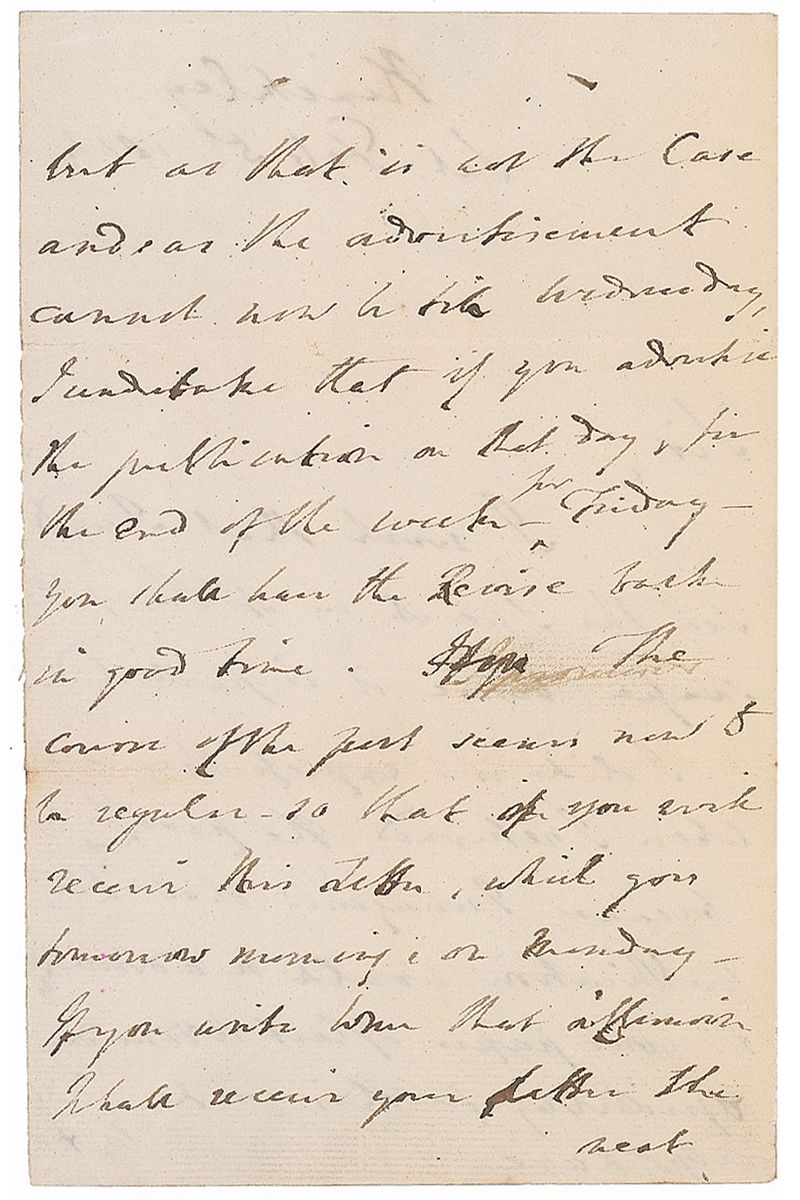 but as that is not the Case
and, as the advertisement
cannot now be till Wednesday,
I undertake that if you advertise
the publication on that day, for
the end of the week – for Friday –
you shall have the Revise back
in good time. The
course of the post seems now to
be regular – so that you will
receive this Letter, which goes
tomorrow morning, on Monday –
If you write to me that afternoon
I shall receive your Letter the
next